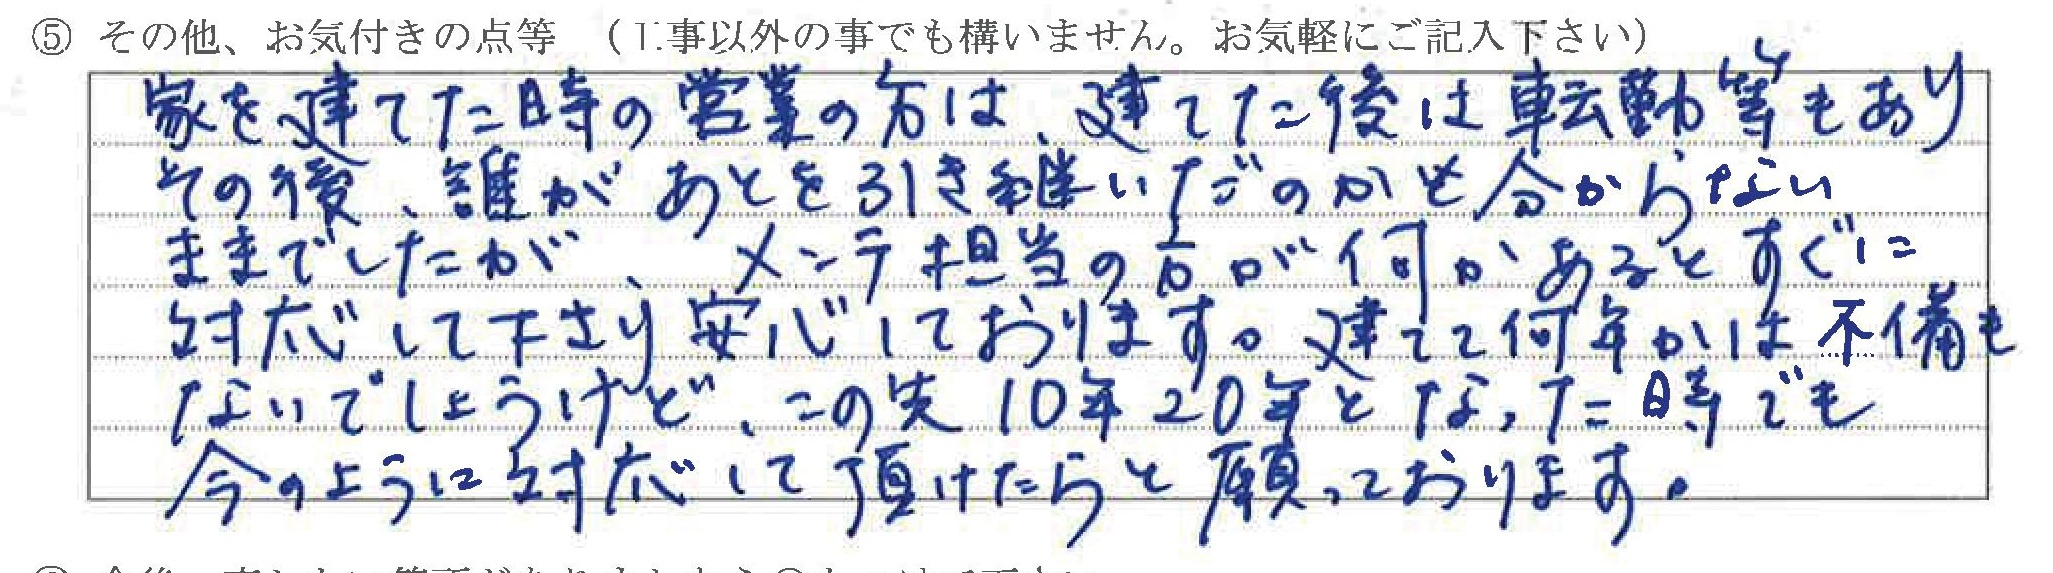 ⑤ その他、お気付きの点等 （工事以外の事でも構いません。お気軽にご記入下さい）
家を建てた時の営業の方は、建てた後は転勤等もあり
その後、誰があとを引き継いだのかも分からない
ままでしたが、メンテ担当の方が何かあるとすぐに
対応して下さり安心しております。建てて何年かは不備も
ないでしょうけど、この先10年20年となった時でも
今のように対応して頂けたらと願っております。